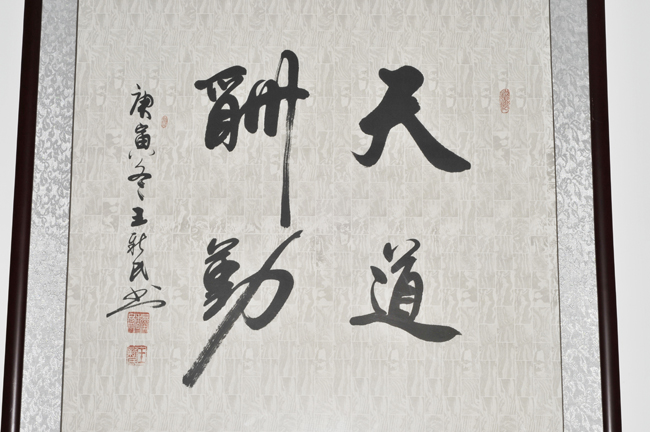 天道
酬勤
庚寅冬王新民书